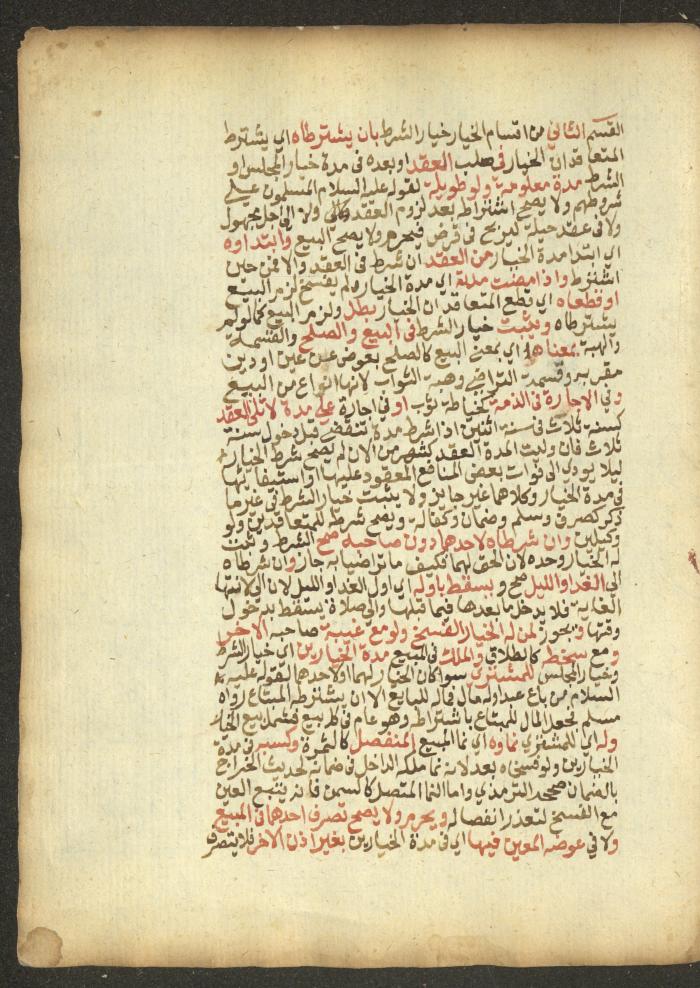 القسم الثاني من اقسام الخيار خيار الشرط بان يشترطاه اي يشترط
المتعاقدان الخيار في صلب العقد او بعده في مدة خيار المجلس او
الشرط مدة معلومة ولو طويلة لقوله عليه السلام المسلمون علي
شروطهم ولا يصح اشتراطه بعد لزوم العقد ولا الي اجل مجهول
ولا في عقد حيلة ليربح في قرض فيحرم ولا يصح البيع وابتداوه
اي ابتدا مدة الخيار من العقد ان شرط في العقد والا فمن حين
اشترط واذا مضت مدته اي مدة الخيار ولم يفسخ لزم البيع
او قطعاه اي قطع المتعاقدان الخيار بطل ولزم البيع كما لو لم
يشترطاه ويثبت خيار الشرط في البيع والصلح والقسمة
والهبة بمعناها اي بمعني البيع كالصلح بعوض عن عين او دين
مقر به وقسمة التراضي وهبة الثواب لانها انواع من البيع
وفي الاجارة في الذمة كخياطة ثوب او في اجارة علي مدة لا تلي العقد
كسنة ثلاث في سنة اثنين اذا شرط مدة تنقضي قبل دخول سنة
ثلاث فان وليت المدة العقد كشهر من الان لم يصح شرط الخيار
ليلا يودي الي فوات بعض المنافع المعقود عليها او استيفايها
في مدة الخيار وكلاهما غير جايز ولا يثبت خيار الشرط في غير ما
ذكر كصرف وسلم وضمان وكفالة ويصح شرطه للمتعاقدين ولو
وكيلين وان شرطاه لاحدهما دون صاحبه صح الشرط وثبت
له الخيار وحده لان الحق لهما فكيف ما تراضيا به جاز وان شرطاه
الي الغد او الليل صح ويسقط باوله اي اول الغد او الليل لان الي لانتها
الغاية فلا يدخل ما بعدها فيما قبلها والي صلاة يسقط بدخول
وقتها ويجوز لمن له الخيار الفسخ ولو مع غيبة صاحبه الاخر
ومع سخطه كالطلاق والملك في المبيع مدة الخيارين اي خيار الشرط
وخيار المجلس للمشتري سوا كان الخيار لهما او لاحدهما لقوله عليه
السلام من باع عبدا وله مال فماله للبايع الا ان يشترطه المبتاع رواه
مسلم فجعل المال للمبتاع باشتراطه وهو عام في كل بيع فشمل بيع الخيار
وله اي للمشتري نماوه اي نما المبيع المنفصل كالثمرة وكسبه في مدة
الخيارين ولو فسخاه بعد لانه نما ملكه الداخل في ضمانه لحديث الخراج
بالضمان صححه الترمذي واما النما المتصل كالسمن فانه يتبع العين
مع الفسخ لتعذر انفصاله ويحرم ولا يصح تصرف احدهما في المبيع
ولا في عوضه المعين فيها اي في مدة الخيارين بغير اذن الاخر فلا يتصرف